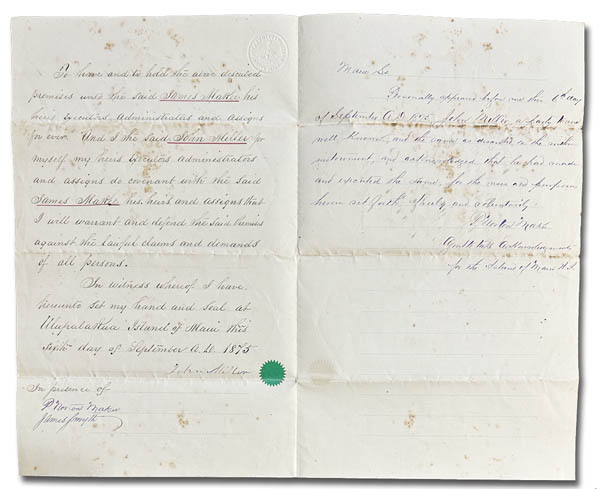 To have and to hold the above described
premises unto the said James Makee his
heirs Executors Administrators and Assigns
for ever. And I the said John Miller for
myself my heirs Executors Administrators
and assigns do covenant with the said
James Makee his heirs and assigns that
I will warrant and defend the said Premises
against the lawful claims and demands
of all persons.
In witness whereof I have
hereunto set my hand and seal at
Ulupalakua Island of Maui this
sixth day of September A.D. 1875
John Miller
In presence of
P Norton Makee
James Smyth
Maui Ss
Personally appeared before me this 6th day
of September A.D. 1875 John Miller, a party to me
well known, and the same as described in the within
instrument, and acknowledged that he had made
and executed the same for the uses and purposes
herein set forth, freely and voluntarily.
P Norton Makee
Agent to take Acknowledgements
for the Island of Maui H.I.